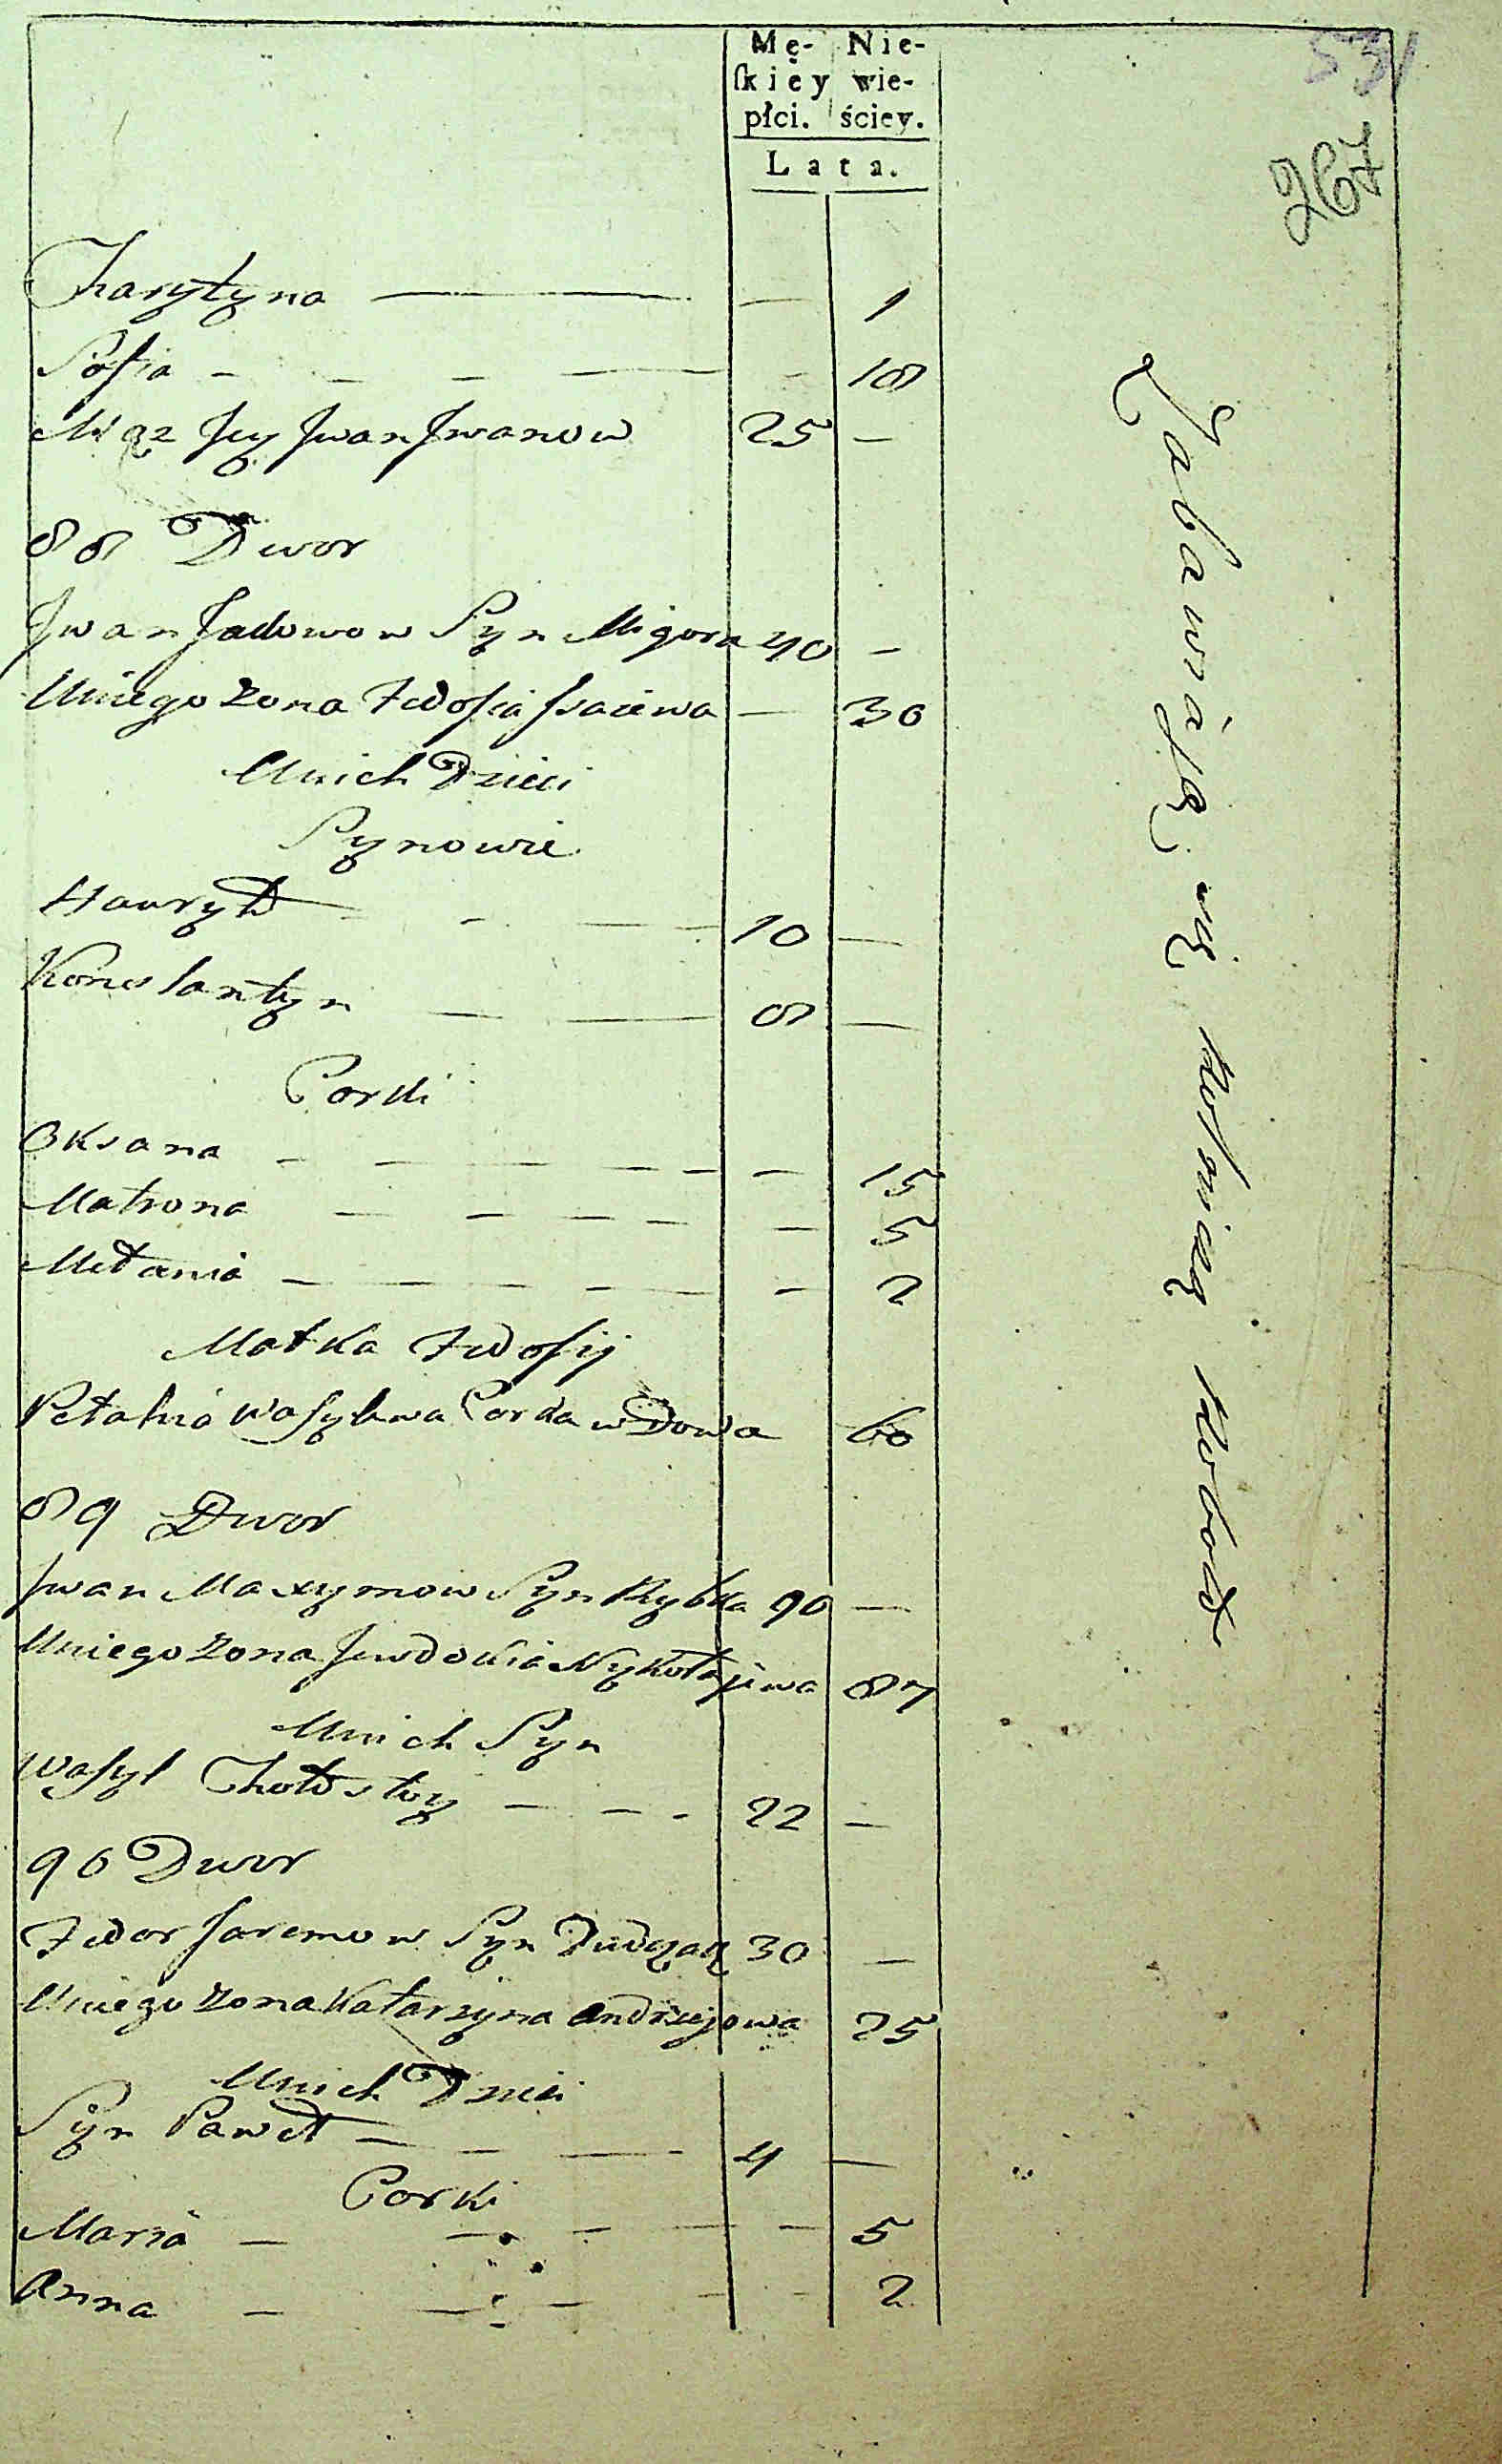 531
267
Mę- Nie-
ſkiéy wie-
płci. ściey.
Lata.
Charytyna — — 1
Sofia — — 18
Mąz Jey Jwan Jwanow 25 —
88 Dwor
Jwan Jadowow Syn Migora 40 —
Uniego Zona Fedosia Jsaiewa — 30
Unich Dzieci
Synowie
Hawryło — 10 —
Konstantyn — 8 —
Corki
Oksana — — 15
Matrona — — 5
Mełania — — 2
Matka Fedosij
Pełahia Wasylewa Corka wdowa 60
89 Dwor
Jwan Maxymow Syn Rybka 90 —
Uniego Zona Jewdokia Nykołajewa 87
Unich Syn
Wasyl Chołostoy — 22 —
90 Dwor
Fedor Jaremow Syn 30 —
Uniego Zona Katarzyna Andrzejowa 25
Unich Dzieci
Syn Paweł — 4 —
Corki
Maria — — 5
Anna — — 2
Zabawiaią się